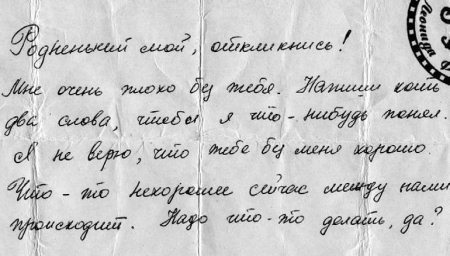 Родненький мой, откликнись!
Мне очень плохо без тебя. Напиши хоть
два слова, чтобы я что-нибудь понял.
Я не верю, что тебе без меня хорошо.
Что-то нехорошее сейчас между нами
происходит. Надо что-то делать, да?
Леонид